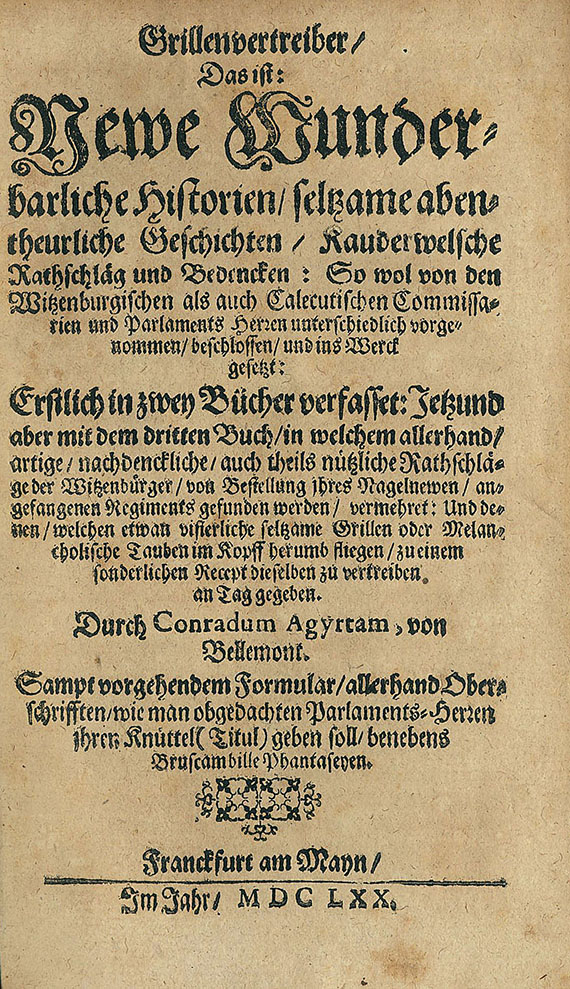 Grillenvertreiber/
Das ist:
Newe Wunder⸗
barliche Historien/ seltzame aben⸗
theurliche Geschichten / Kauderwelsche
Rathschläg und Bedencken : So wol von den
Witzenburgischen als auch Calecutischen Commissa⸗
rien und Parlaments Herren unterschiedlich vorge⸗
nommen/ beschlossen/ und ins Werck
gesetzt:
Erstlich in zwey Bücher verfasset: Jetzund
aber mit dem dritten Buch/ in welchem allerhand/
artige / nachdenckliche/ auch theils nützliche Rathschlä⸗
ge der Witzenbürger/ von Bestellung jhres Nagelnewen/ an⸗
gefangenen Regiments gefunden werden/ vermehret: Und de⸗
nen/ welchen etwan visierliche seltzame Grillen oder Melan⸗
cholische Tauben im Kopff herumb fliegen/ zu einem
sonderlichen Recept dieselben zu vertreiben
an Tag gegeben.
Durch Conradum Agyrtam, von
Bellemont.
Sampt vorgehendem Formular/ allerhand Ober⸗
schrifften/ wie man obgedachten Parlaments⸗Herren
jhren Knüttel( Titul) geben soll/ benebens
Bruscambille Phantaseyen.
Franckfurt am Mayn/
Im Jahr/ M DC LXX.